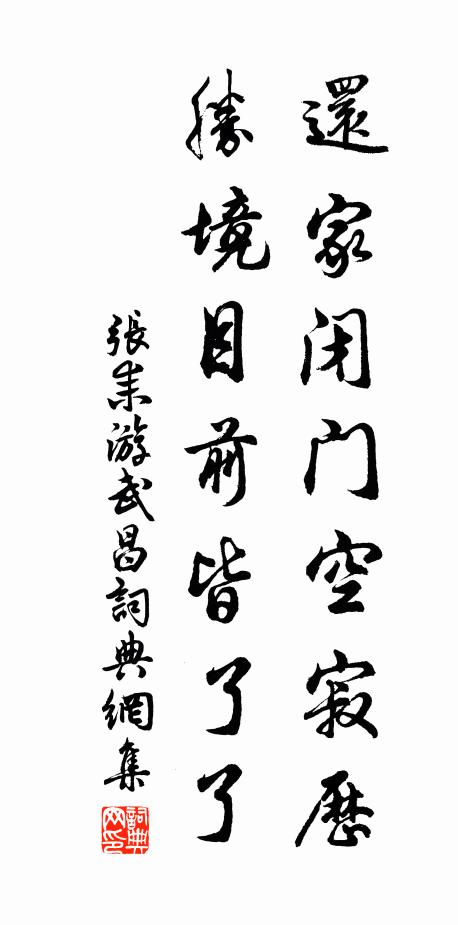 還家闭门空寂歷
勝境目前皆了了
張耒游武昌詞典網集
詞典网印